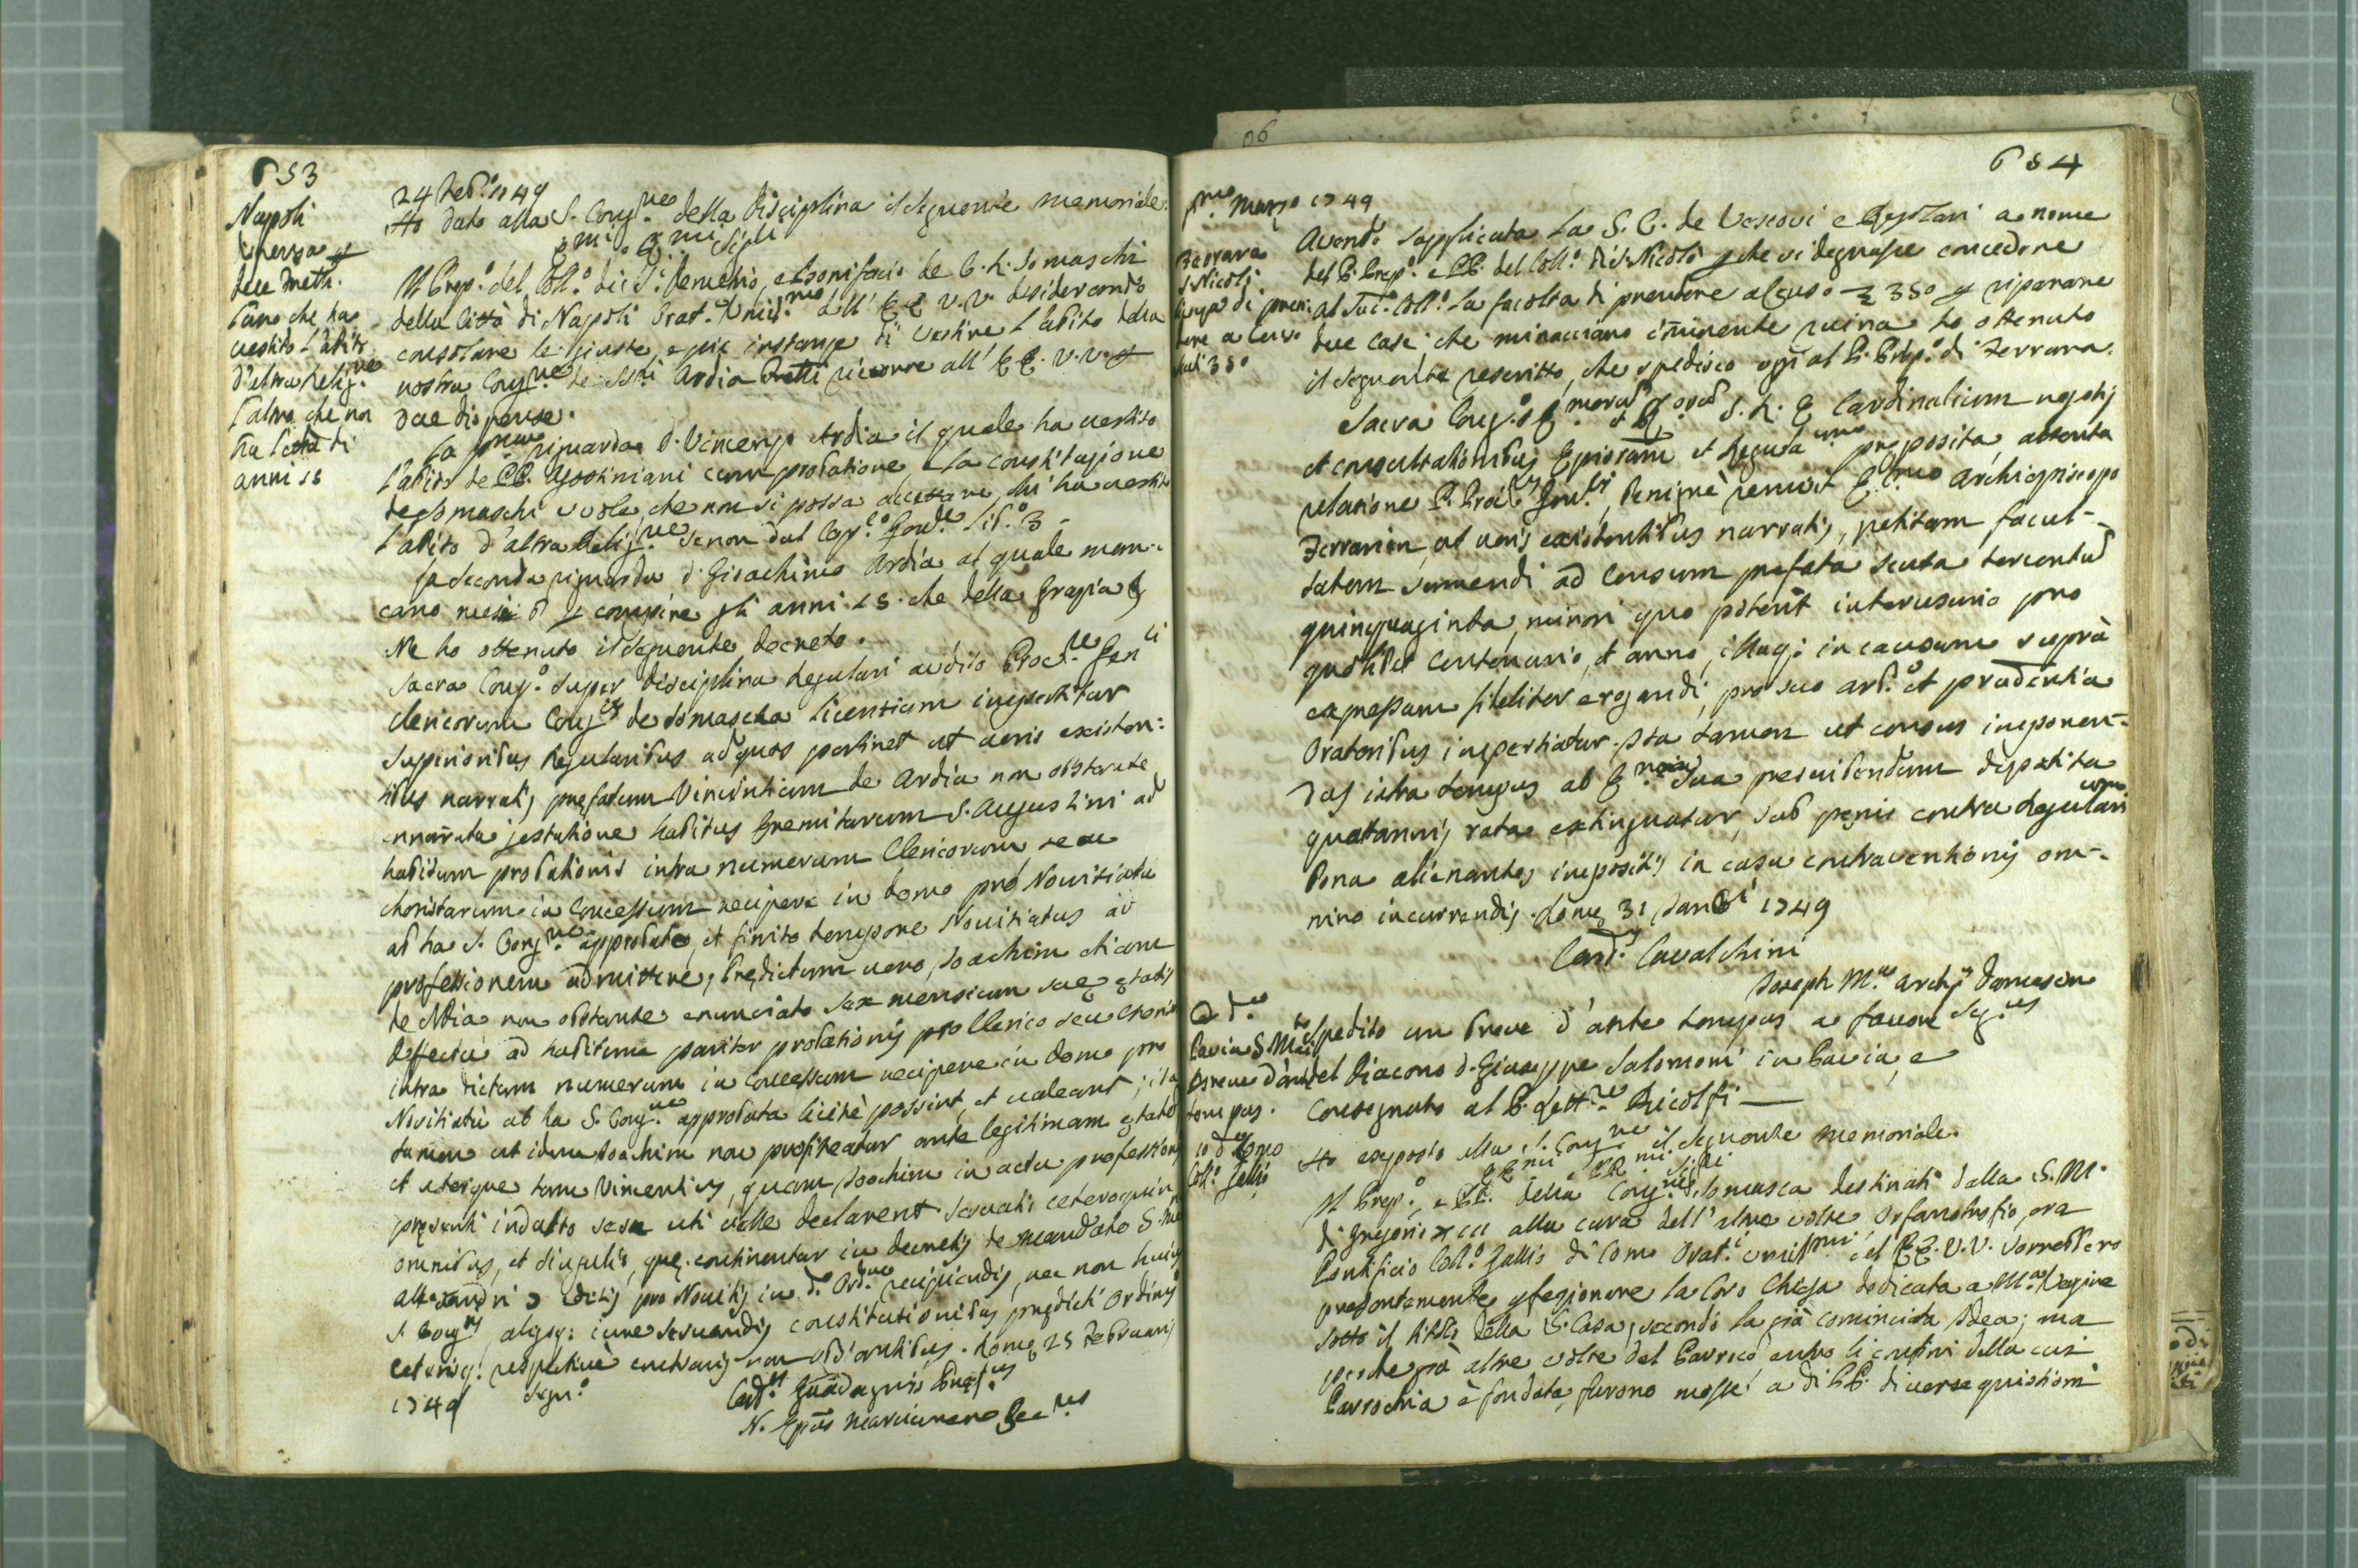 653
Napoli
licenza p
due Preti.
l'uno che ha
vestito l'abito
d'altra Relig.ne
l'altro che non
ha l'età di
anni 18
24 Feb.o 1749
Ho dato alla S. Cong.ne della disciplina il seguente memoriale:
E.mi, e R.mi Sig.ri
Il Prep.o del Coll.o di S. Demetrio, e Bonifacio de C. R. Somaschi
della Città di Napoli Orat. Umil.mo all' EE. VV. desiderando
consolare le giuste, e pie instanze di vestire l'abito della
nostra Cong.ne de Ardia ricorre all' EE. V.V. p
due dispense.
La p.ma riguarda D. Vincenzo Ardia il quale ha vestito
l'abito de PP. Agostiniani cum probatione e la constituzione
de Somaschi vuole, che non si possa accettare, chi ha vestito
l'abito d'altra Relig.ne se non dal Cap.lo Gen.le lib.o 3 -
La seconda riguarda D. Gioachino Ardia al quale man-
cano mesi 6 p compire gli anni 15. che della Grazia &
Ne ho ottenuto il seguente decreto.
Sacra Cong.o super disciplina Regulari audito Proc.re Gen.li
Clericorum Cong.is de Somascha licentiam impertitur
Superioribus Regularibus ad quos pertinet ut veris existen:
tibus narratis prefatum Vincentium de Ardia non obstante
ennarrata gestatione habitus Eremitarum S. Augustini ad
habitum probationis intra numerum Clericorum seu
choristarum in Concessum recipere in domo pro Novitiatu
ab hac S. Cong.ne approbata, et finito tempore Novitiatus ad
professionem admittere; Predictum vero Joachim etiam
de Ardia non obstante enunciato sex mensium sue etatis
deffectu ad habitum pariter probationis pro Clerico seu chorista
intra dictum numerum in Concessum recipere in domo pro
Novitiatu ab hac S. Cong.ne approbata licitè possint, et valeant; ita
tamen ut idem Joachim non profiteatur ante legitimam etatem
et uterque tam Vincentius, quam Joachim in actu professionis
presenti indulto sese uti velle declarent. Servatis ceteroquin
omnibus, et singulis, que continentur in decretis de mandato S. me
Alexandri 7 editis pro Novitijs in d.o Ord.ne recipiendis, nec non huius
S. Cong.nis alijsq: iure servandis constitutionibus predicti Ordinis
ceterisq: respective contrarijs non obstantibus. Rome 25 Februarij
1749
Card.lis Guadagnis Pref.us
N. Epus Marcianen Sec.us
654
p.mo Marzo 1749
Ferrara
S. Nicolò
licenza di pren:
dere a Censo
scudi 350
Avendo supplicata la S. C. de Vescovi e Regolari a nome
del P. Prep.o e PP. del Coll.o di S. Nicolò p che si degnasse concedere
al Sud.o Coll.o la facoltà di prendere a Censo 350 p riparare
due case che minacciano iminente ruina ho ottenuto
il seguente rescritto, che spedisco oggi al P. Prep.o di Ferrara.
Sacra Cong.o E.morum et R.orum S. R. E Cardinalium negotijs
et consultationibus Episcoporum et Regularium preposita, attenta
relatione P. Proc.ris Gen.lis, benignè remisit E.mo Archiepiscopo
Ferrarien, ut veris existentibus narratis, petitam facul-
tatem sumendi ad Censum prefata scuta tercentum
quinquaginta, minori quo poterit interusurio pro
quolibet Centenario, et anno, illaq: in causam suprà
expressam fideliter erogandi, pro suo arb.o et prudentia
Oratoribus impertiatur. Ita tamen ut census imponen-
dus intra tempus ab E. Sua prescribendum deposita
quotannis rata extinguatur, sub penis contra Regularium
bona alienantes impositis in casu contraventionis om-
nino incurrendis. Rome 31 Januarij 1749
Card. Cavalchini
Joseph M.a Archip Damascen
Seg.us
A d.o
Pavia S. Maiolo
Breve d'ante
tempus.
Ho spedito un Breve d'ante tempus a favore
del Diacono D. Giuseppe Salomoni in Pavia, e
consegnato al P. Lett.re Ricolfi
10 d.o Como
Coll.o Gallio
Ho esposto alla S. Cong.ne il seguente memoriale.
E.mi e RR.mi Sig.ri
Il Prep.o, e PP. della Cong.ne di Somasca destinati dalla S. M.
di Gregorio XIII alla cura dell'altre volte Orfanotrofio, ora
Pontificio Coll.o Gallio di Como Orat.i umil.mi del EE. V.V. vorrebbero
presentemente p fezionare la loro Chiesa dedicata a M.a Vergine
sotto il titolo della S. Casa, secondo la già cominciata idea; ma
perche già altre volte dal Parroco entro li confini della cui
Parrochia è fondata, furono mosse a di PP. diverse quistioni